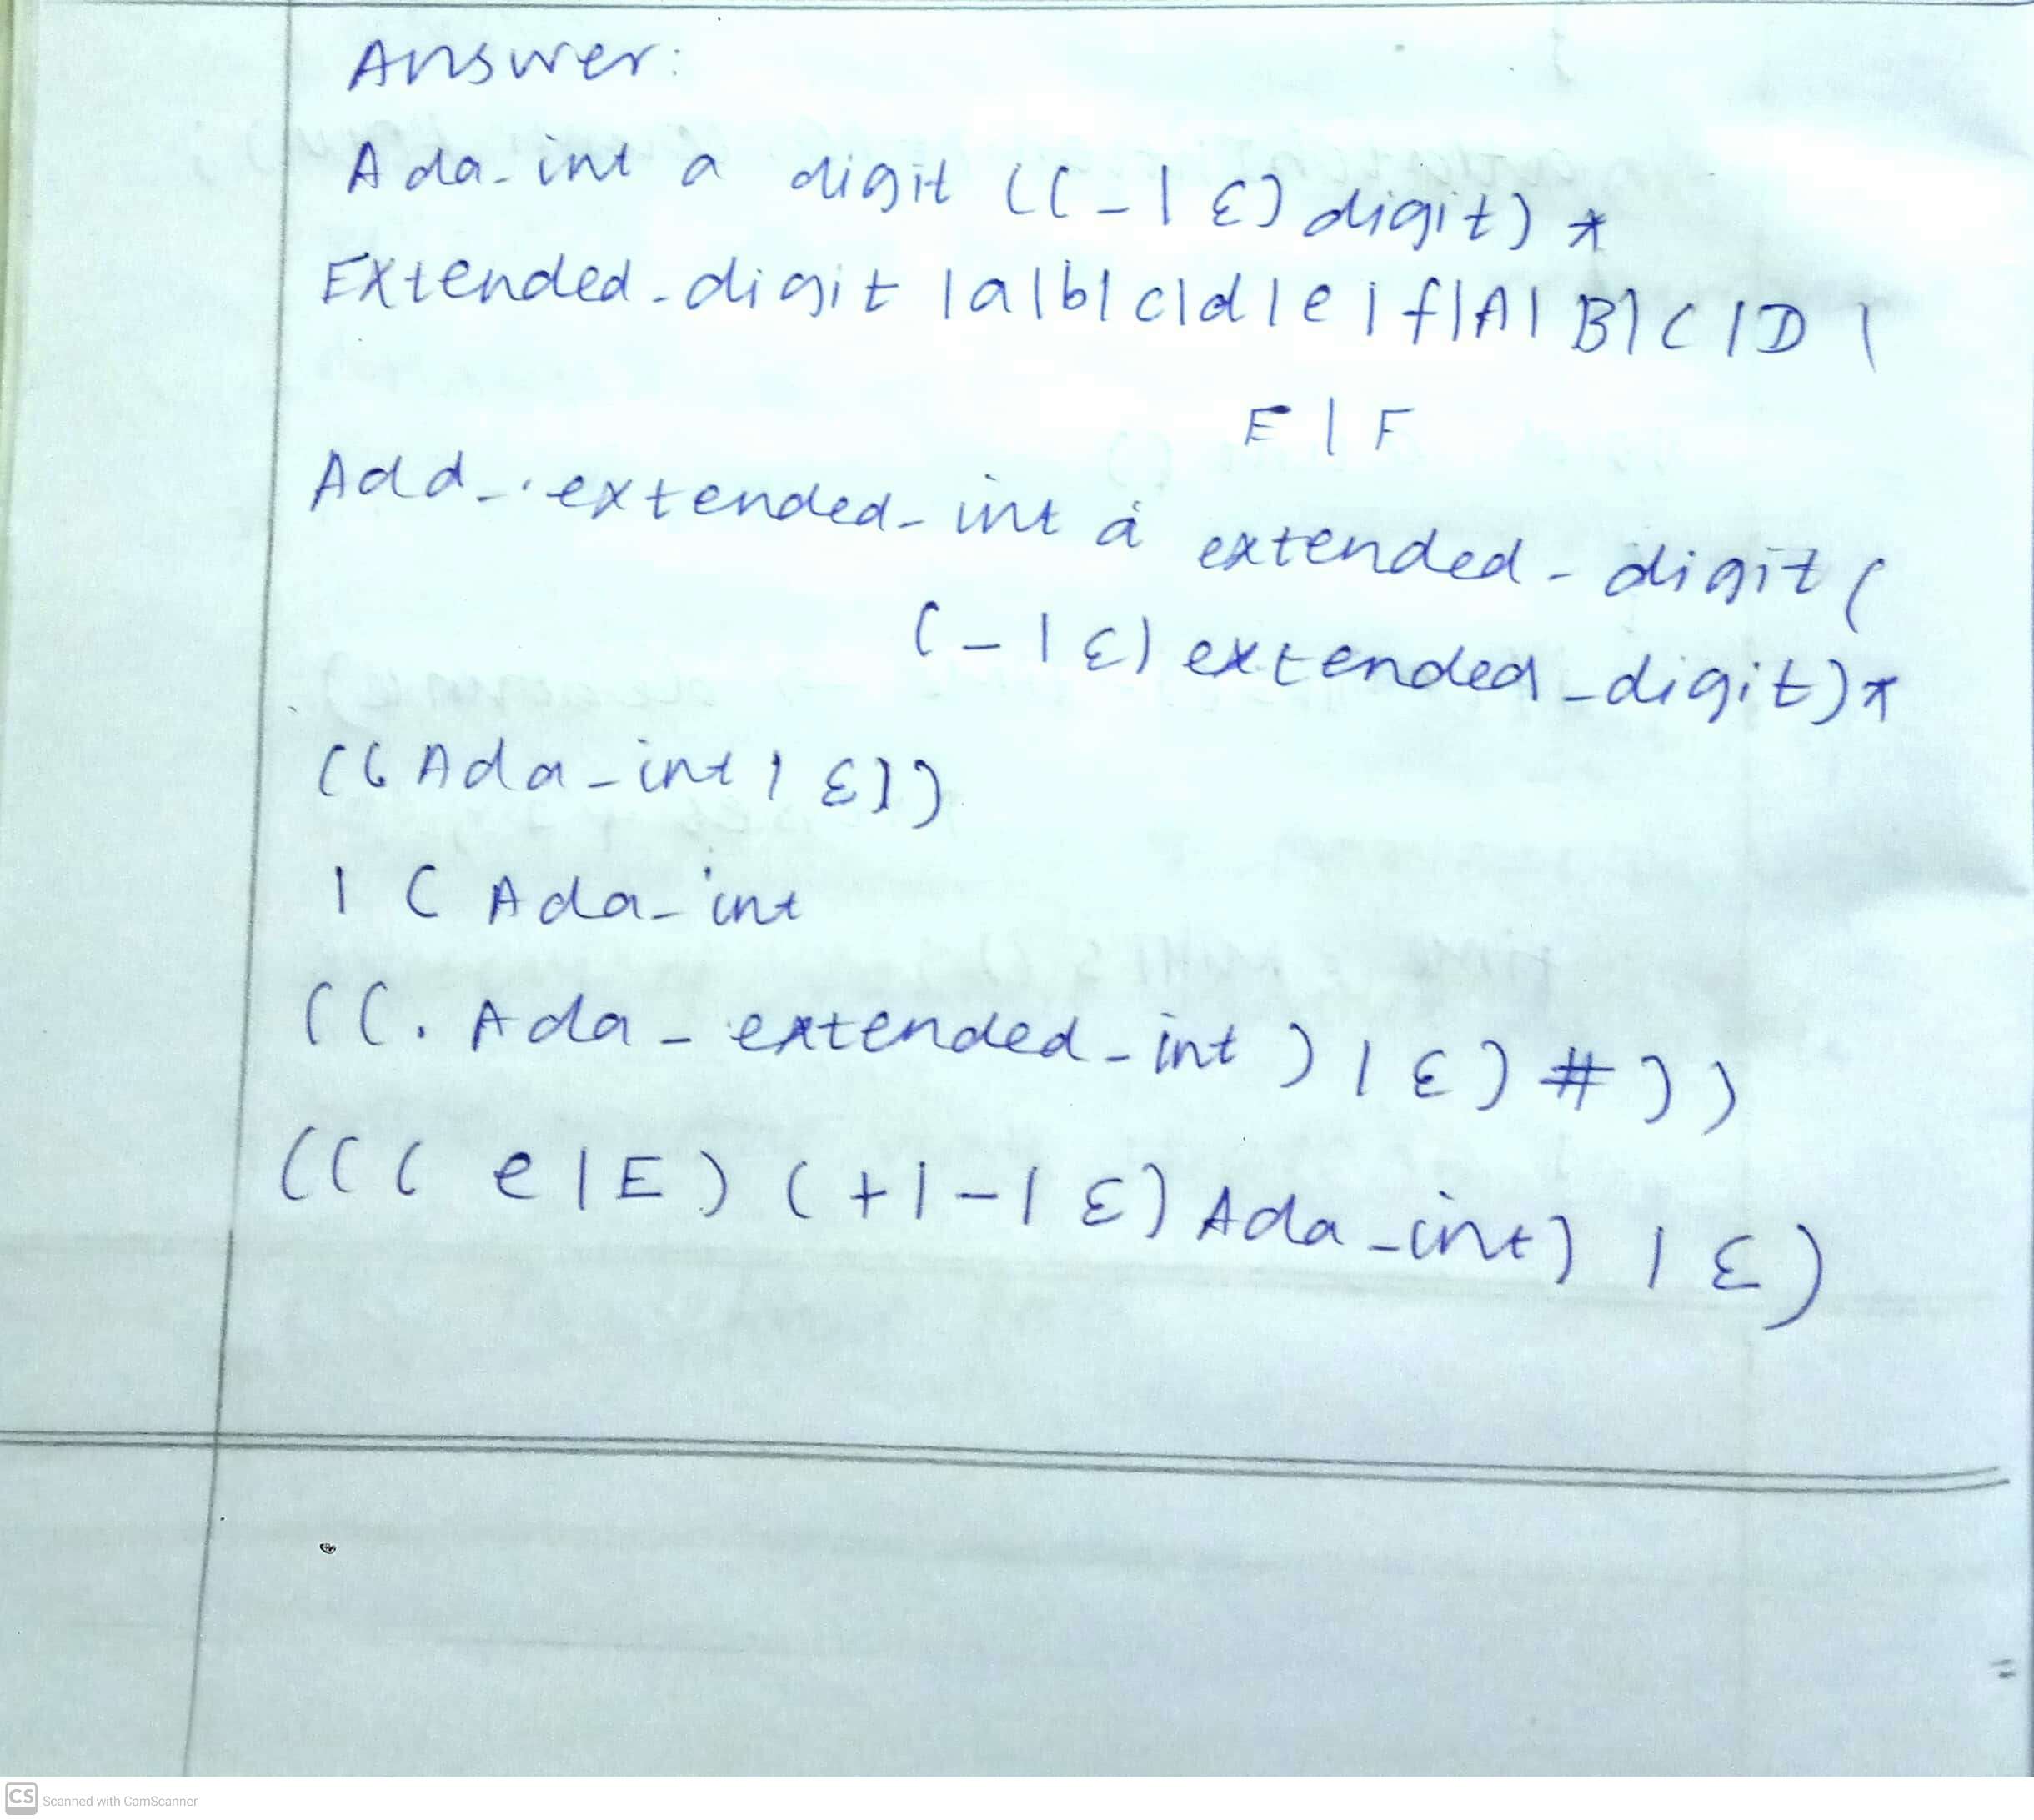 Answer:
Ada-int a digit ((-|ε) digit)*
Extended-digit |a|b|c|d|e|f|A|B|C|D|
E|F
Add-extended-int a extended-digit(
(-|ε) extended_digit)*
((Ada-int|ε))
|(Ada-int
((.Ada-extended-int)|ε)#))
(((e|E)(+|-|ε)Ada-int)|ε)
CS Scanned with CamScanner